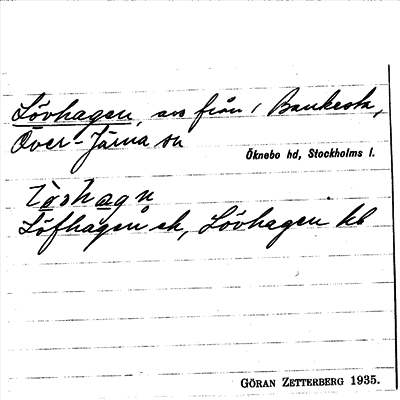 Lövhagen, avs från 1 Bankesta,
Över-Järna sn
Öknebo hd, Stockholms l.
Löfhagen ek, Lövhagen kb
GÖRAN ZETTERBERG 1935.